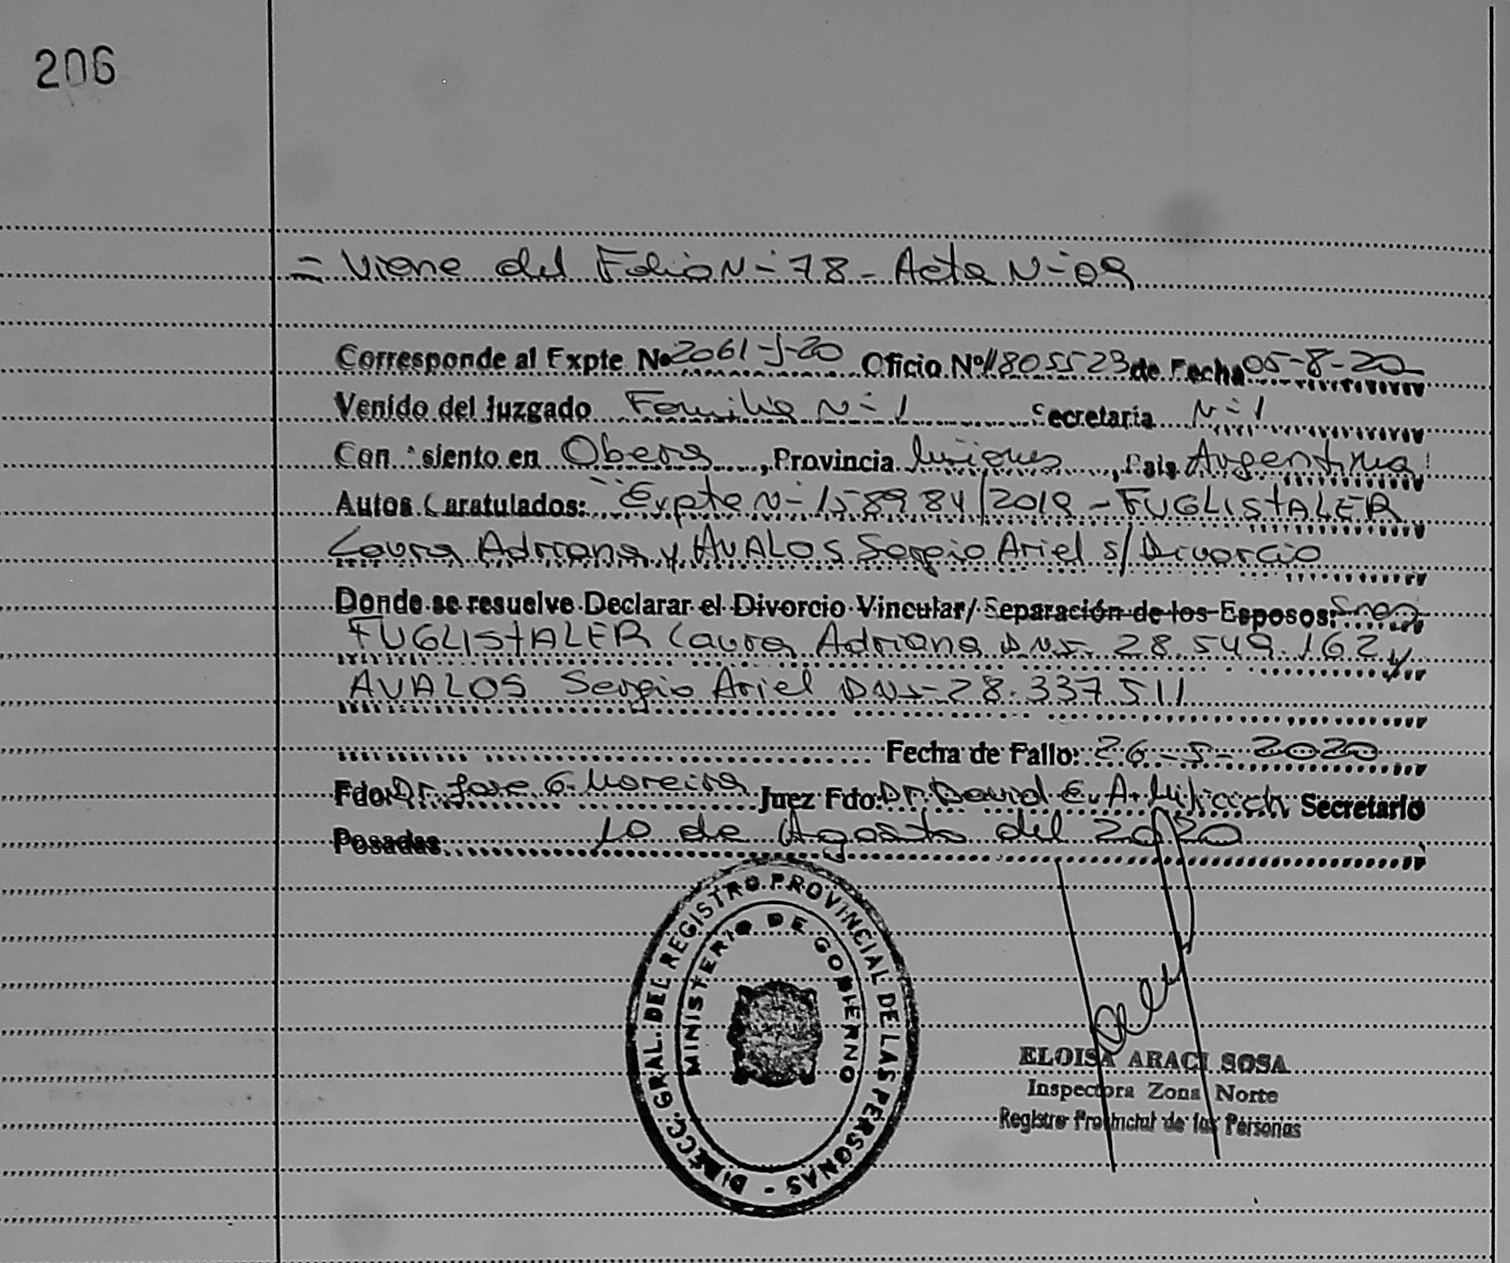 206
= Viene del Folio N- 78 - Acta N- 09
Corresponde al Expte Nº 2061-J-20 Oficio Nº 1805523 de Fecha 05-8-20
Venido del Juzgado Familia N- 1 Secretaria N- 1
Con siento en Obera, Provincia Misiones, Pais Argentina
Autos Caratulados: "Expte N- 158984/2019 - FUGLISTALER
Laura Adriana y AVALOS Sergio Ariel s/ Divorcio
Donde se resuelve Declarar el Divorcio Vincular/ Separación de los Esposos: Sres
FUGLISTALER Laura Adriana DNI- 28.549.162 y
AVALOS Sergio Ariel DNI- 28.337.511
Fecha de Fallo: 26-5-2020
Fdo: Dr. Jose G. Moreira Juez Fdo: Dr. David E. A. Secretario
Posadas: 10 de Agosto del 2020
DIRECC. GRAL. DEL REGISTRO PROVINCIAL DE LAS PERSONAS -
MINISTERIO DE GOBIERNO
ELOISA ARACI SOSA
Inspectora Zona Norte
Registro Provincial de las Personas